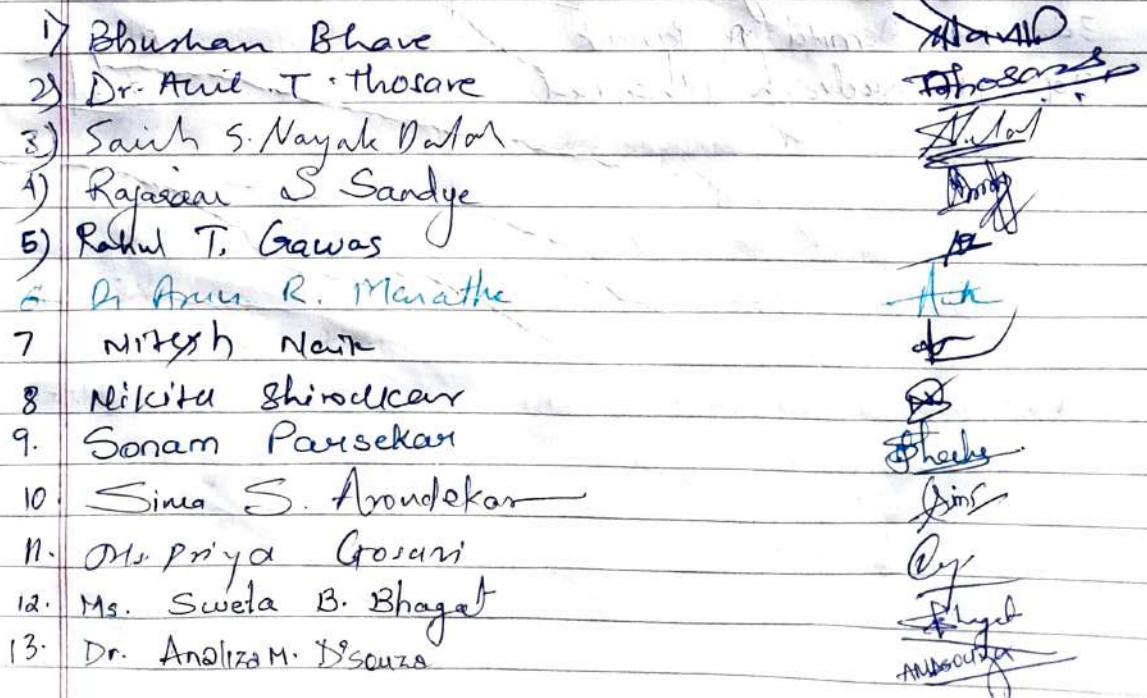 1) Bhushan Bhave
2) Dr. Anil T. Thosare Thosare
3) S. Nayak Dalal
4) Rajaram S Sandye
5) Rahul T. Gawas
6 Dr Arun R. Marathe
7 Nitesh Naik
8 Nikita Shirodkar
9. Sonam Parsekar
10. Sima S. Arondekar
11. Ms. Priya Gosavi
12. Ms. Sweta B. Bhagat Bhagat
13. Dr. Analiza M. D'souza AMDsouza